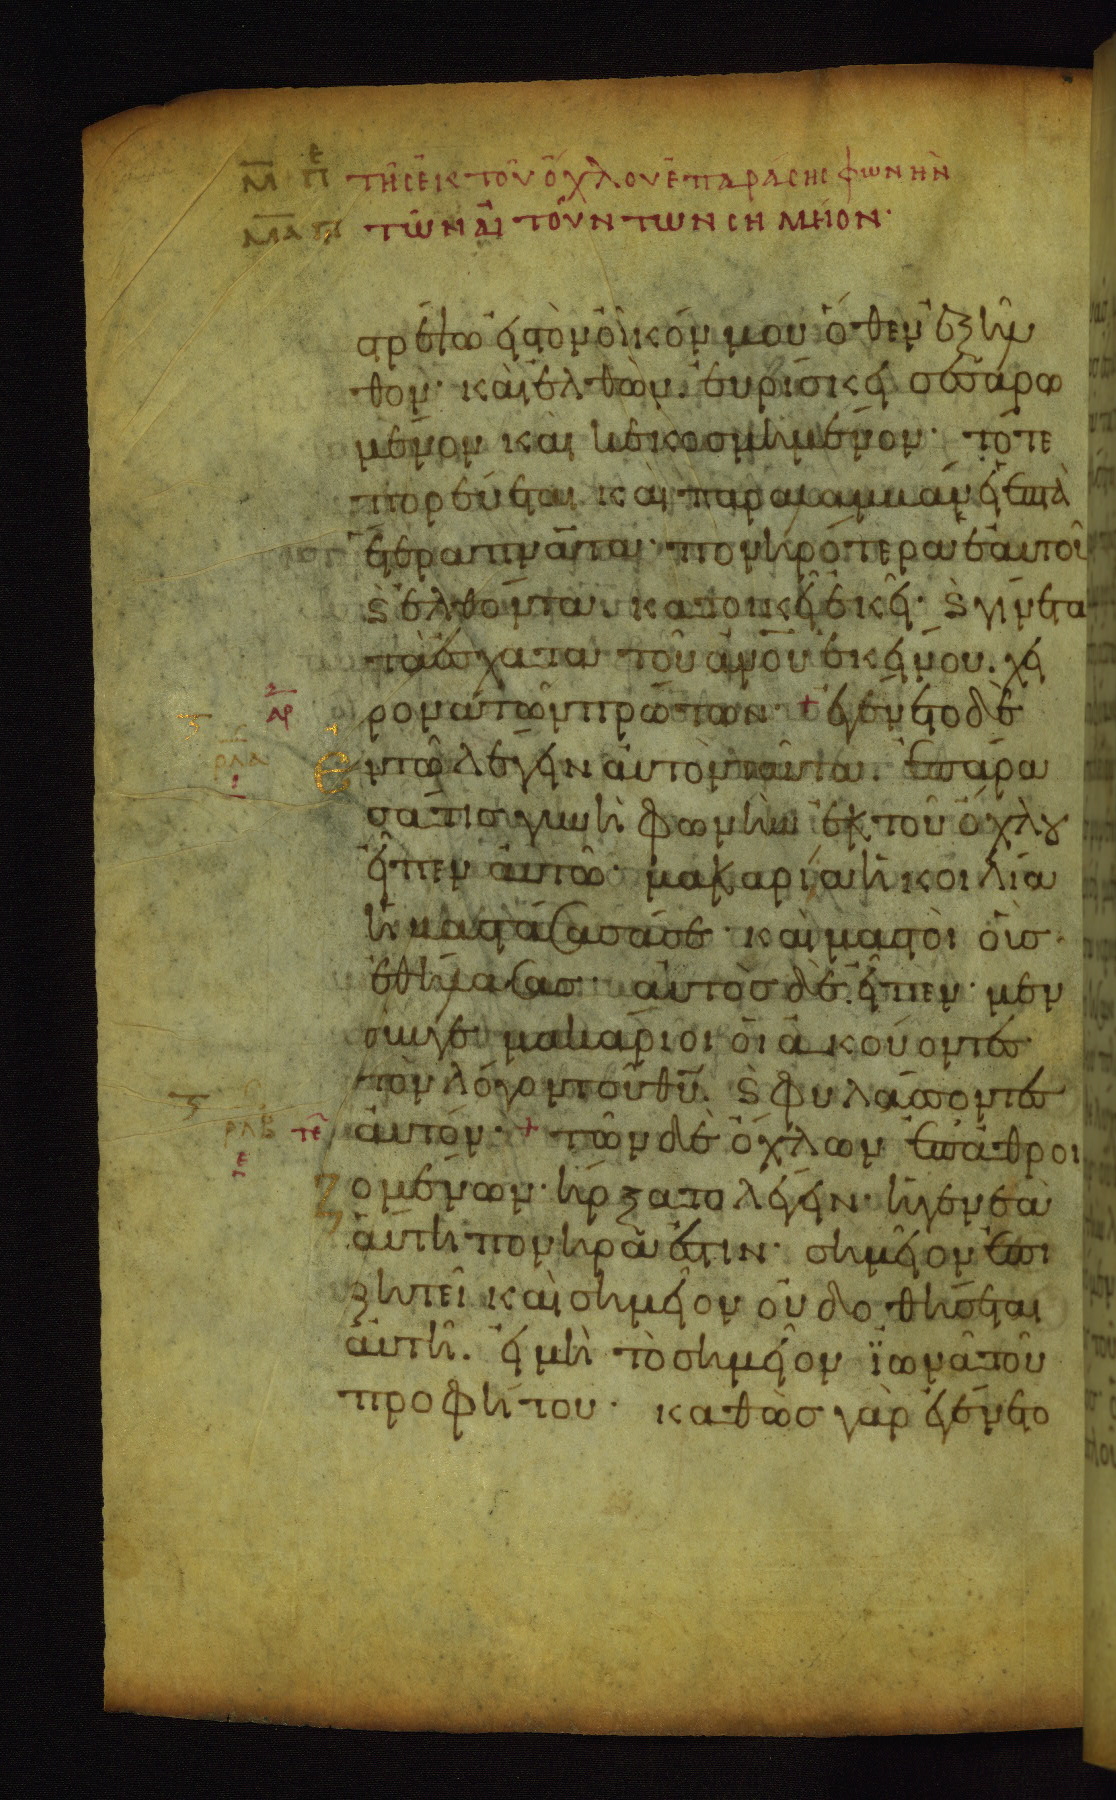 Μ Π τῆς ἐκ τοῦ ὄχλου ἐπαράσης φωνὴν
ΜΑ ΠΙ τῶν αἰτούντων σημῆον·
στρέψω εἰς τὸν οἶκόν μου ὅθεν ἐξῆλ
θον· καὶ ἐλθὼν. εὑρίσκει σεσαρω
μένον καὶ κεκοσμημένον· τότε
πορεύεται καὶ παραλαμβάνει ἑπτὰ
ἕτερα πνα̅τα· πονηρότερα ἑαυτοῦ
ϗ ἐλθόντα. κατοικεῖ ἐκεῖ· ϗ γίνεται
τὰ ἔσχατα τοῦ ἀνο̅υ ἐκείνου. χεί
ρονα τῶν πρώτων + ἐγένετο δὲ
ἐν τῶ λέγειν αὐτὸν ταῦτα. ἐπάρα
σά τις γυνὴ φωνὴν ἐκ τοῦ ὄχλου
εἶπεν αὐτῶ· μακαρία ἡ κοιλία
ἡ βαστάσασά σε· καὶ μαστοὶ οἷς
ἐθήλασας· αὐτὸς δὲ. εἶπεν· μεν
οῦνγε μακάριοι οἱ ἀκούοντες
τὸν λόγον τοῦ θυ̅. ϗ φυλάσσοντες
τε αὐτόν· + τῶν δὲ ὄχλων ἐπαθροι
ζομένων· ἤρξατο λέγειν· ἡ γενεὰ
αὕτη πονηρά ἐστιν· σημεῖον ἐπι
ζητεῖ καὶ σημεῖον οὐ δοθήσεται
αὐτῆ. εἰ μὴ τὸ σημεῖον ἰωνᾶ τοῦ
προφήτου· καθὼς γὰρ ἐγένετο